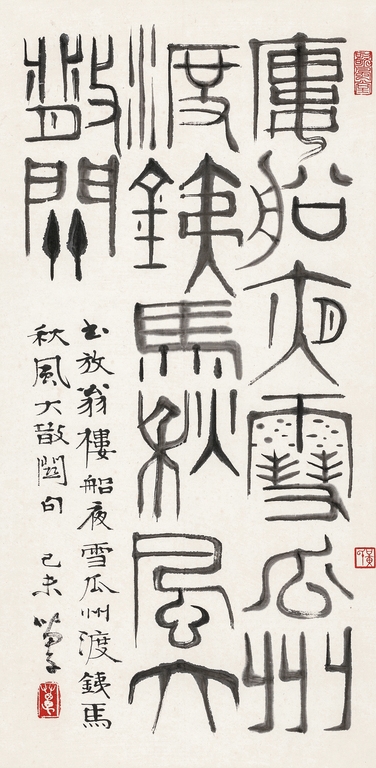 樓船夜雪瓜州
渡鐵馬秋風大
散關
書放翁樓船夜雪瓜州渡鐵馬
秋風大散關句 己未